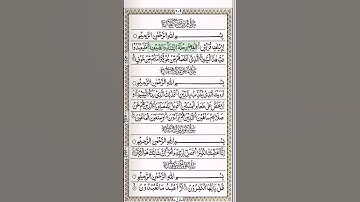 بِسْمِ اللّٰهِ الرَّحْمٰنِ الرَّحِيْمِ
لِاِيْلٰفِ قُرَيْشٍ اٖلٰفِهِمْ رِحْلَةَ الشِّتَآءِ وَالصَّيْفِ فَلْيَعْبُدُوْا
رَبَّ هٰذَا الْبَيْتِ الَّذِيْٓ اَطْعَمَهُمْ مِّنْ جُوْعٍ وَّاٰمَنَهُمْ مِّنْ خَوْفٍ
بِسْمِ اللّٰهِ الرَّحْمٰنِ الرَّحِيْمِ
اَرَءَيْتَ الَّذِيْ يُكَذِّبُ بِالدِّيْنِ فَذٰلِكَ الَّذِيْ يَدُعُّ الْيَتِيْمَ وَلَا
يَحُضُّ عَلٰى طَعَامِ الْمِسْكِيْنِ فَوَيْلٌ لِّلْمُصَلِّيْنَ الَّذِيْنَ هُمْ
عَنْ صَلَاتِهِمْ سَاهُوْنَ الَّذِيْنَ هُمْ يُرَآءُوْنَ وَيَمْنَعُوْنَ الْمَاعُوْنَ
بِسْمِ اللّٰهِ الرَّحْمٰنِ الرَّحِيْمِ
اِنَّآ اَعْطَيْنٰكَ الْكَوْثَرَ فَصَلِّ لِرَبِّكَ وَانْحَرْ اِنَّ شَانِئَكَ هُوَ الْاَبْتَرُ
بِسْمِ اللّٰهِ الرَّحْمٰنِ الرَّحِيْمِ
قُلْ يٰٓاَيُّهَا الْكٰفِرُوْنَ لَآ اَعْبُدُ مَا تَعْبُدُوْنَ وَ